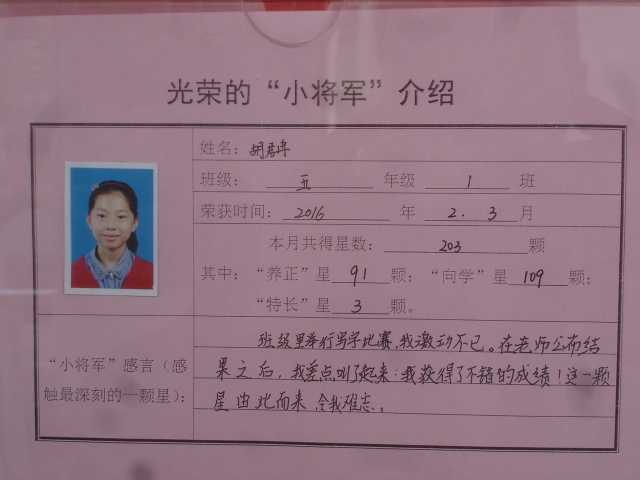 光荣的“小将军”介绍
姓名：胡君
班级： 五 年级 1 班
荣获时间： 2016 年 2.3 月
本月共得星数： 203 颗
其中：“养正”星 91 颗；“向学”星 109 颗；
“特长”星 3 颗。
“小将军”感言（感
触最深刻的一颗星）：
班级里举行写字比赛，我激动不已。在老师公布结
果之后，我差点叫了起来：我获得了不错的成绩！这一颗
星由此而来，令我难忘。